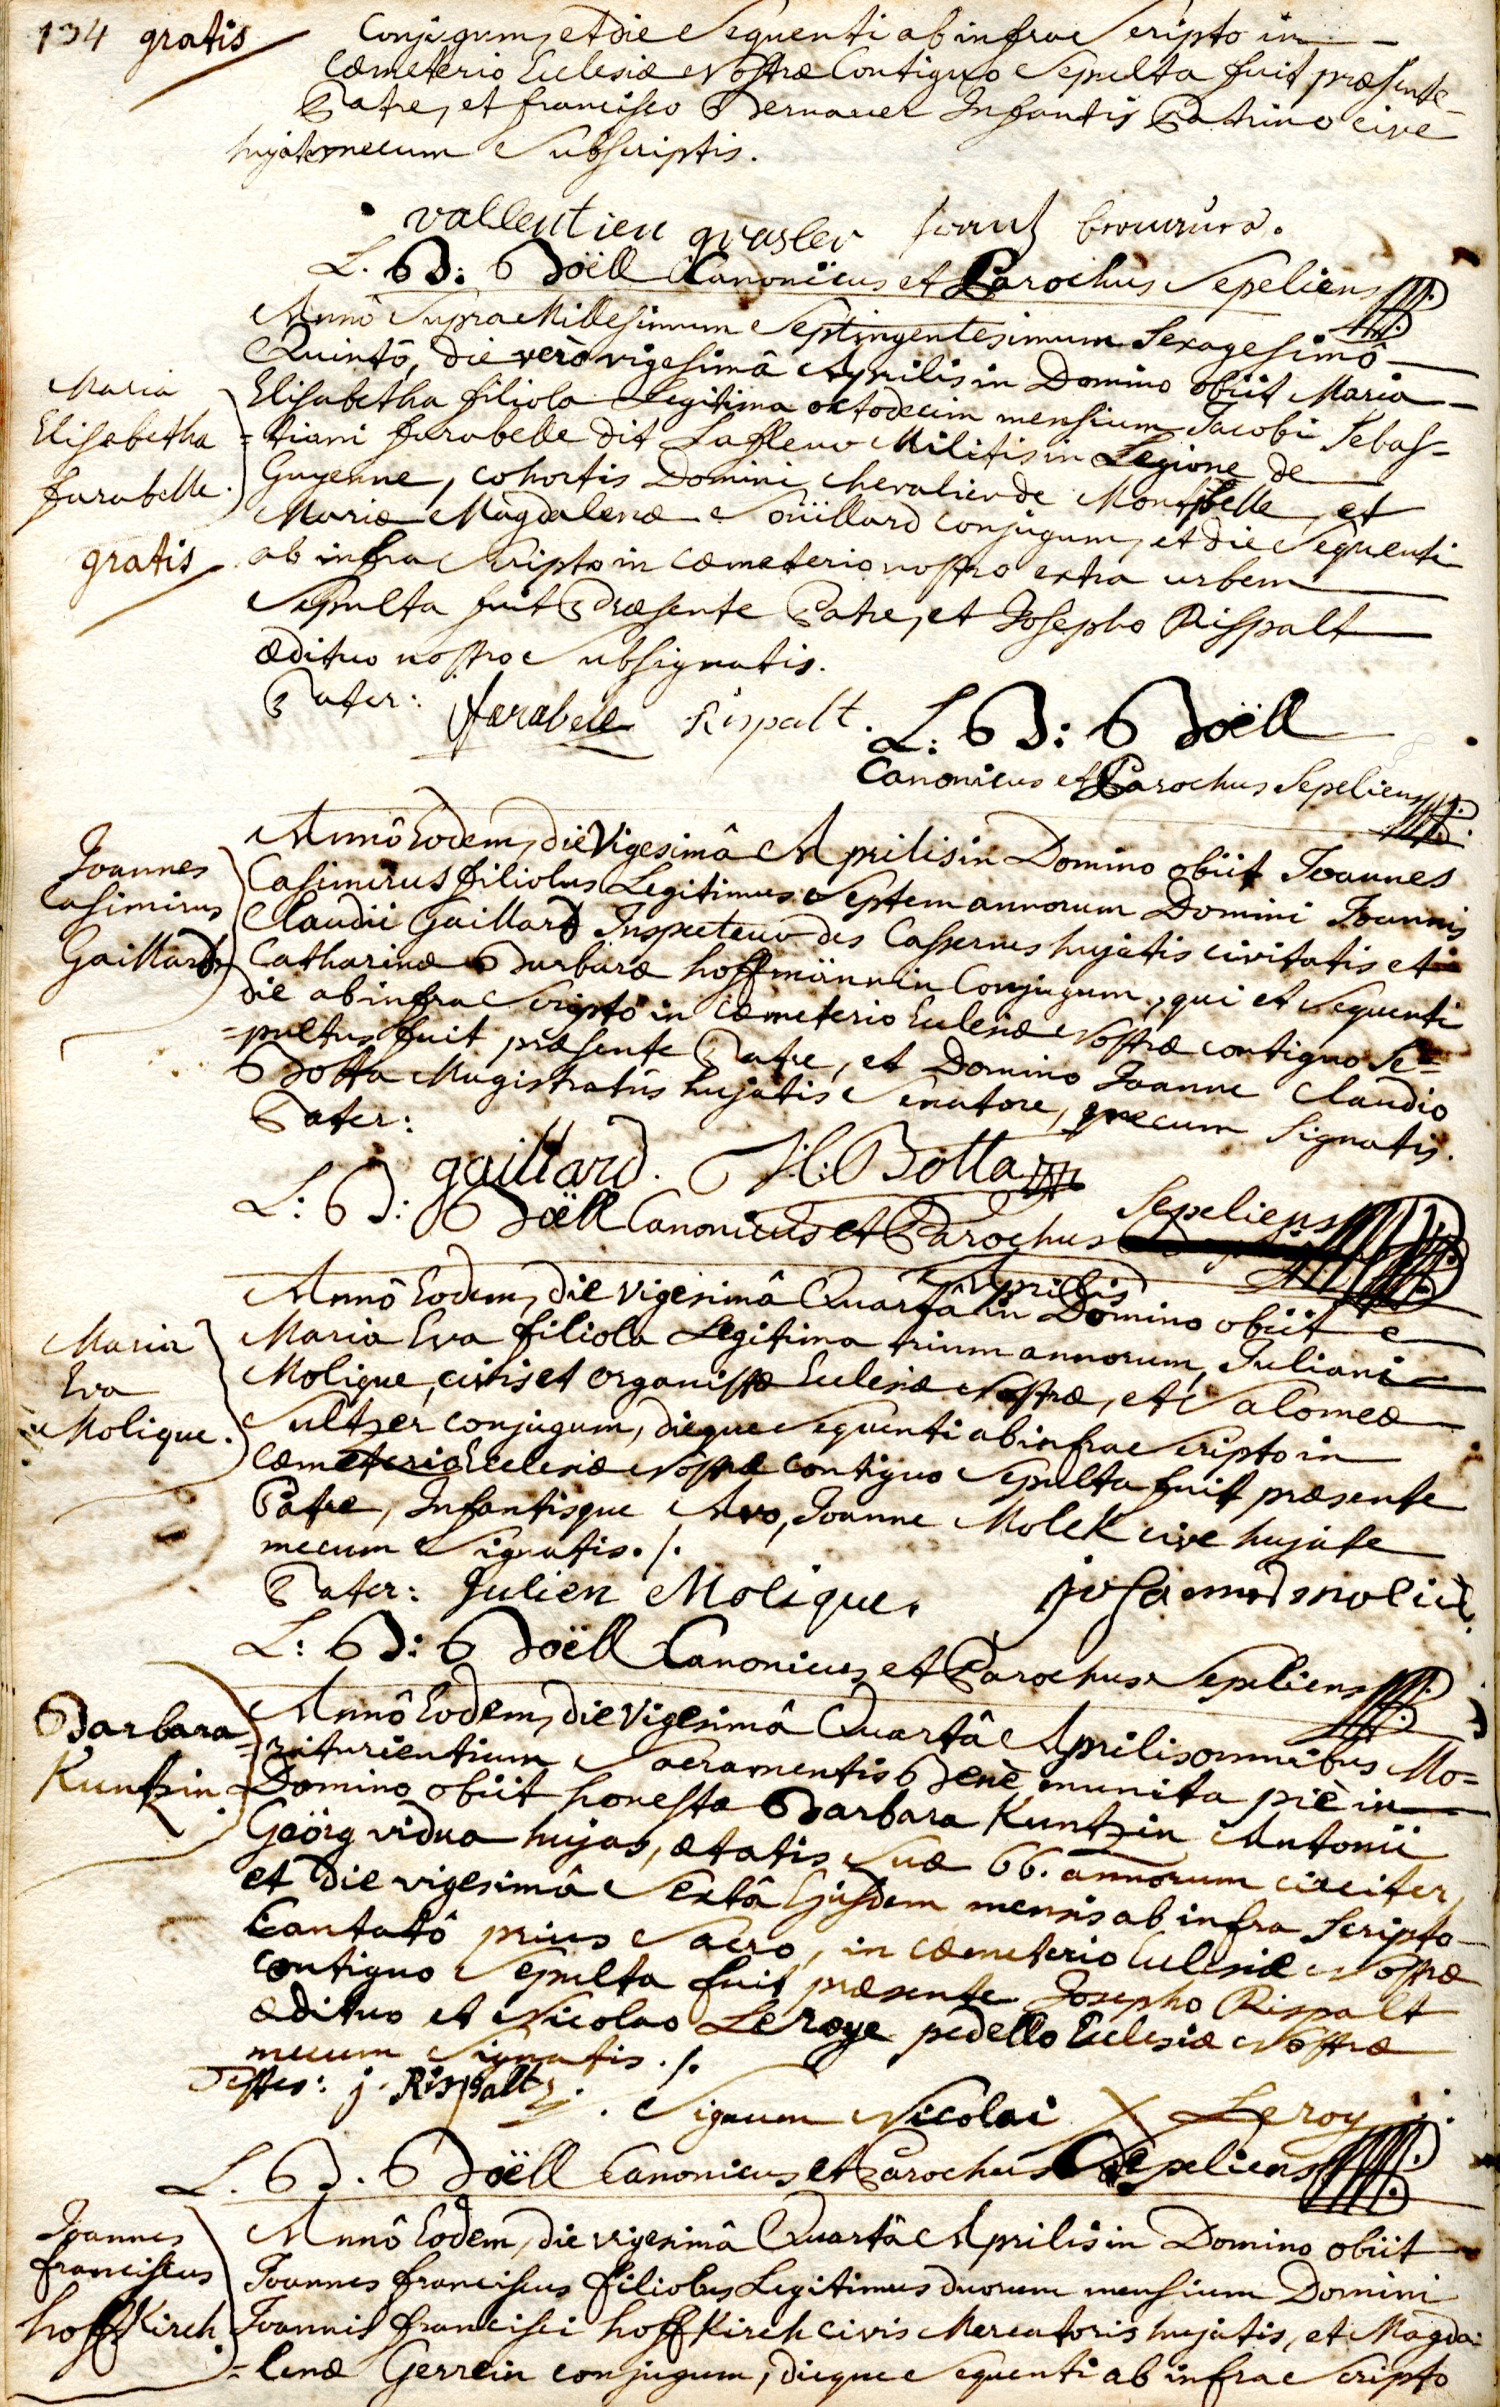 134 gratis
Conjugum, et die Sequenti ab infra Scripto in
Cœmeterio Ecclesiæ Nostræ Contiguo Sepulta fuit, præsente
Patre, et francisco Bernauer Infantis Patrino cive
hujate mecum Subscriptis.
vallentien grasler frantz
L. B: Böell Canonicus et Parochus Sepeliens
Maria
Elisabetha
farabelle.
gratis
Annô Supra Millesimum Septingentesimum Sexagesimô
Quintô, die verò vigesimâ Aprilis in Domino obiit Maria
Elisabetha filiola Legitima octodecim mensium Jacobi Sebas-
=tiani farabelle dit Lafleur Militis in Legione de
Guyenne, cohortis Domini chevalier de Montbelle, et
Mariæ Magdalenæ Soüillard conjugum, et die Sequenti
ab infra Scripto in Cœmeterio nostro extra urbem
Sepulta fuit Præsente Patre, et Josepho Rispalt
ædituo nostro Subsignatis.
Pater: farabelle Rispalt.
L: B: Böell
Canonicus et Parochus Sepeliens
Joannes
Casimirus
Gaillard
Annô Eodem, die Vigesimâ Aprilis in Domino obiit Joannes
Casimirus filiolus Legitimus Septem annorum Domini Joannis
Claudii Gaillard Inspecteur des Cassernes hujatis civitatis et
Catharinæ Barbaræ hoffmännin Conjugum, qui et Sequenti
die ab infra Scripto in Cœmeterio Ecclesiæ Nostræ contiguo Se=
=pultus fuit præsente Patre, et Domino Joanne Claudio
Botta Magistratûs hujatis Senatore, mecum Signatis.
Pater:
gaillard. Botta
L: B: Böell Canonicus et Parochus Sepeliens
Maria
Eva
Molique.
Aprilis
Annô Eodem, die Vigesimâ Quartâ in Domino obiit
Maria Eva filiola Legitima trium annorum, Juliani
Molique, civis et organistæ Ecclesiæ Nostræ, et Salomeæ
Sultzer conjugum, dieque Sequenti ab infra Scripto in
Cœmeterio Ecclesiæ Nostræ contiguo Sepulta fuit præsente
Patre, Infantisque Avo, Joanne Molek cive hujate
mecum Signatis./.
Pater: Julien Molique.
L: B: Böell Canonicus et Parochus Sepeliens
Barbara
Kuntzin
Annô Eodem, die Vigesimâ Quartâ Aprilis omnibus Mo=
=riturientium Sacramentis Benè munita piè in
Domino obiit honesta Barbara Kuntzin Antonii
Geörg vidua hujas, ætatis Suæ 66. annorum circiter,
et Die vigesimâ Sextâ Ejusdem mensis ab infra Scripto
Cantatô prius Sacro, in Cœmeterio Ecclesiæ Nostræ
Contiguo Sepulta fuit præsente Josepho Rispalt
ædituo et Nicolao Leroye pedello Ecclesiæ Nostræ
mecum Signatis./.
Testes: j. Rispalt. Signum Nicolai X Leroy
L. B. Böell Canonicus et Parochus Sepeliens
Joannes
franciscus
hoffKirch
Annô Eodem, die vigesimâ Quartâ Aprilis in Domino obiit
Joannes franciscus filiolus Legitimus duorum mensium Domini
Joannis francisci hoffKirch civis Mercatoris hujatis, et Magda-
=lenæ Gerrein conjugum, dieque Sequenti ab infra Scripto